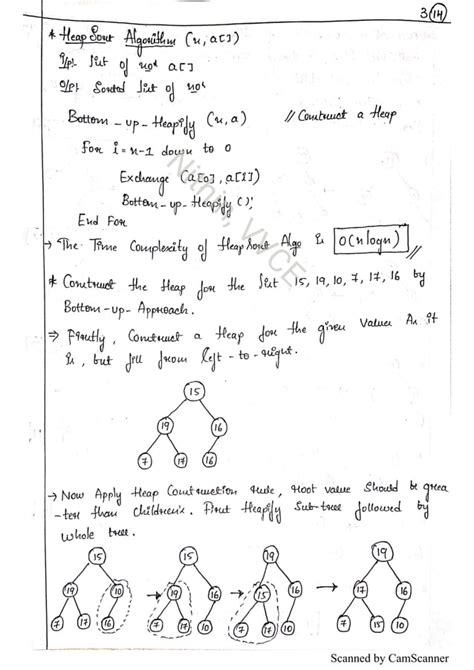 3 (14)
* Heap Sort Algorithm (n, a[])
I/p: list of no's a[]
O/p: Sorted list of no's
Bottom-up-Heapify (n, a) // Construct a Heap
For i = n-1 down to 0
Exchange (a[0], a[i])
Bottom-up-Heapify ();
End For
→ The Time Complexity of Heap Sort Algo is O(n logn) //
* Construct the Heap for the list 15, 19, 10, 7, 17, 16 by
Bottom-up-Approach.
⇒ Firstly, Construct a Heap for the given Values As it
is, but fill from left-to-right.
15
19 16
7 17 10
→ Now Apply Heap Construction Rule, Root value Should be grea
-ter than children's. First Heapify Sub-tree followed by
whole tree.
15 15 19 19
19 10 → 19 16 → 15 16 → 17 16
7 17 16 7 17 10 7 17 10 7 15 10
Nithin, VVCE
Scanned by CamScanner